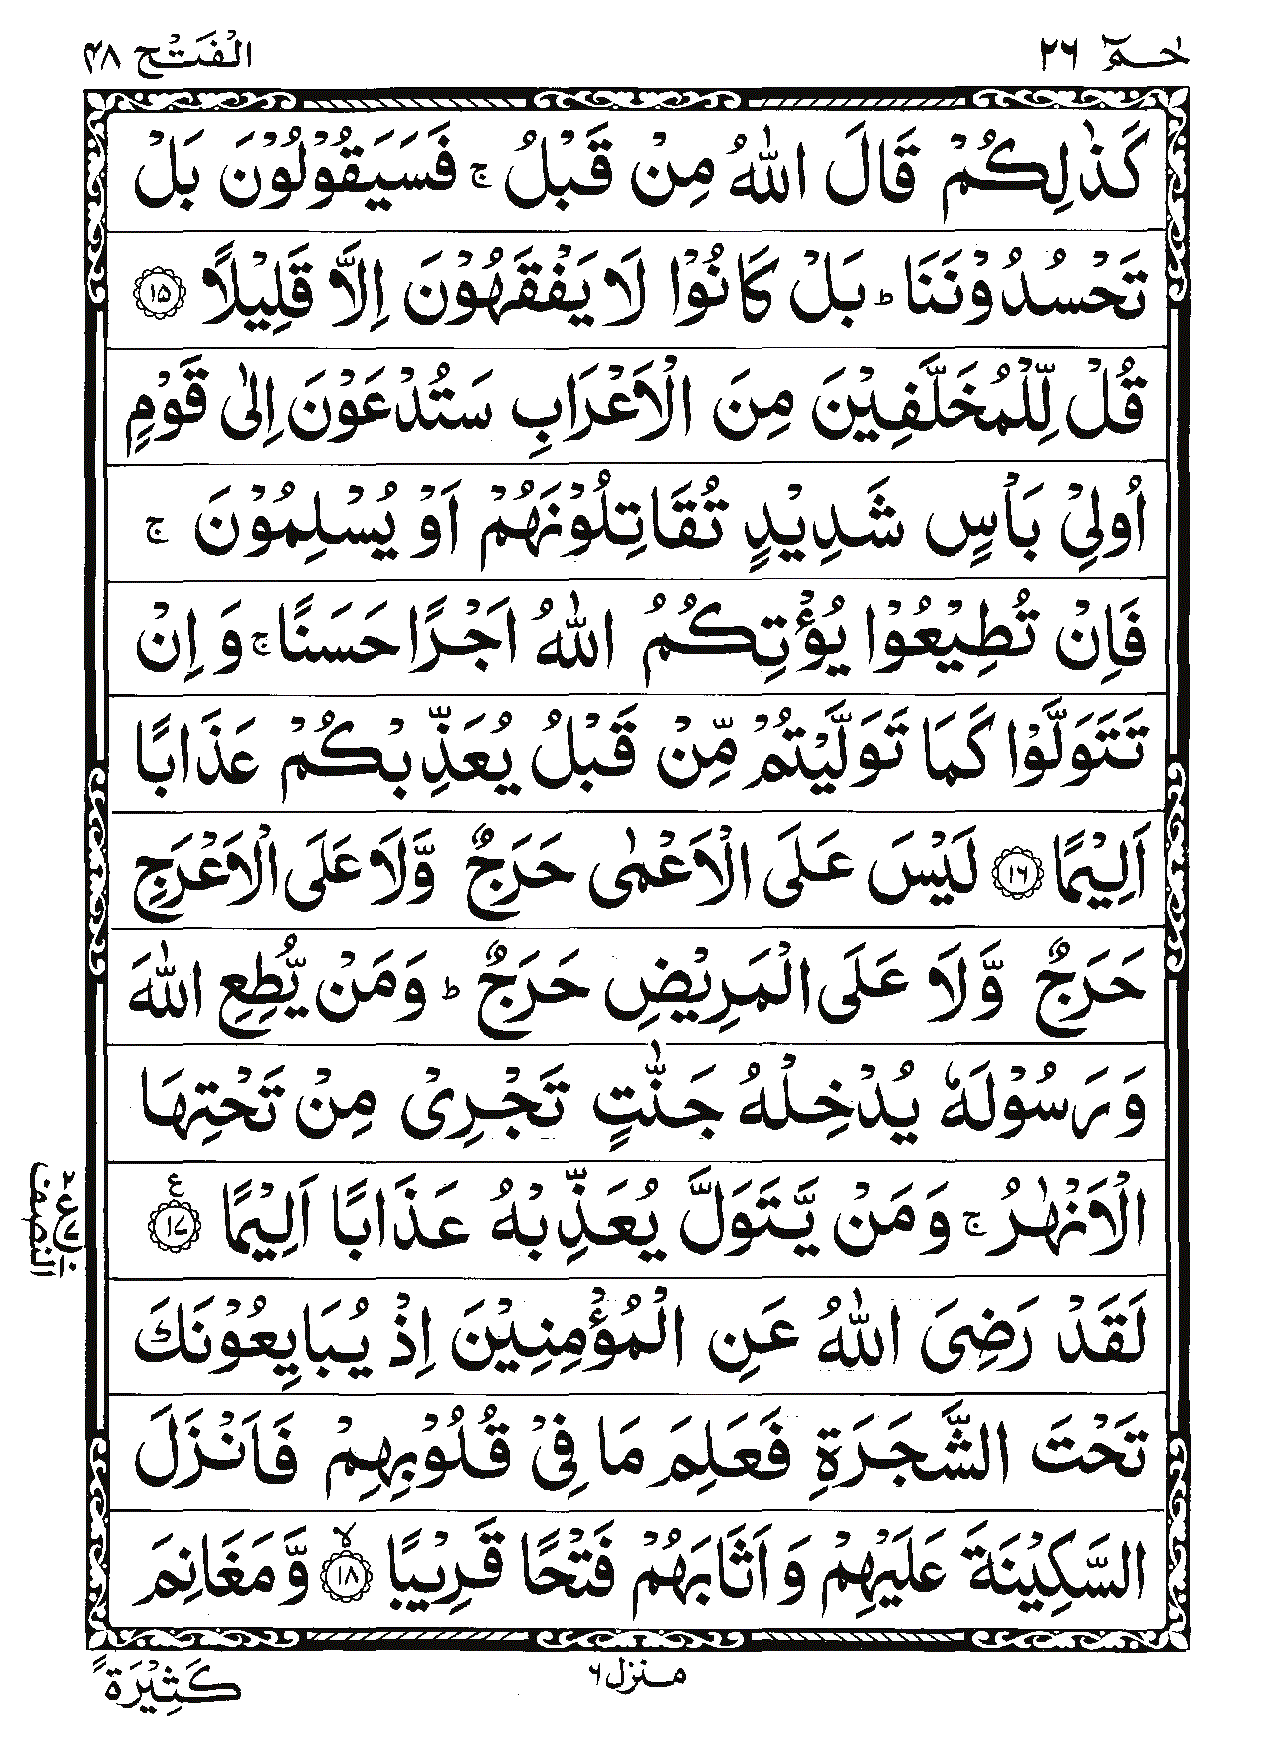 حٰمٓ ٢٦ الْفَتْح ٤٨
كَذٰلِكُمْ قَالَ اللّٰهُ مِنْ قَبْلُ ۚ فَسَيَقُوْلُوْنَ بَلْ
تَحْسُدُوْنَنَا ؕ بَلْ كَانُوْا لَا يَفْقَهُوْنَ اِلَّا قَلِيْلًا ﴿۱۵﴾
قُلْ لِّلْمُخَلَّفِيْنَ مِنَ الْاَعْرَابِ سَتُدْعَوْنَ اِلٰى قَوْمٍ
اُولِيْ بَاْسٍ شَدِيْدٍ تُقَاتِلُوْنَهُمْ اَوْ يُسْلِمُوْنَ ۚ
فَاِنْ تُطِيْعُوْا يُؤْتِكُمُ اللّٰهُ اَجْرًا حَسَنًا ۚ وَ اِنْ
تَتَوَلَّوْا كَمَا تَوَلَّيْتُمْ مِّنْ قَبْلُ يُعَذِّبْكُمْ عَذَابًا
اَلِيْمًا ﴿۱۶﴾ لَيْسَ عَلَى الْاَعْمٰى حَرَجٌ وَّلَا عَلَى الْاَعْرَجِ
حَرَجٌ وَّلَا عَلَى الْمَرِيْضِ حَرَجٌ ؕ وَمَنْ يُّطِعِ اللّٰهَ
وَرَسُوْلَهٗ يُدْخِلْهُ جَنّٰتٍ تَجْرِيْ مِنْ تَحْتِهَا
الْاَنْهٰرُ ۚ وَمَنْ يَّتَوَلَّ يُعَذِّبْهُ عَذَابًا اَلِيْمًا ﴿۱۷﴾ ع
لَقَدْ رَضِيَ اللّٰهُ عَنِ الْمُؤْمِنِيْنَ اِذْ يُبَايِعُوْنَكَ
تَحْتَ الشَّجَرَةِ فَعَلِمَ مَا فِيْ قُلُوْبِهِمْ فَاَنْزَلَ
السَّكِيْنَةَ عَلَيْهِمْ وَ اَثَابَهُمْ فَتْحًا قَرِيْبًا ﴿۱۸﴾ ۙ وَّ مَغَانِمَ
النصف
منزل ٦
كَثِيْرَةً